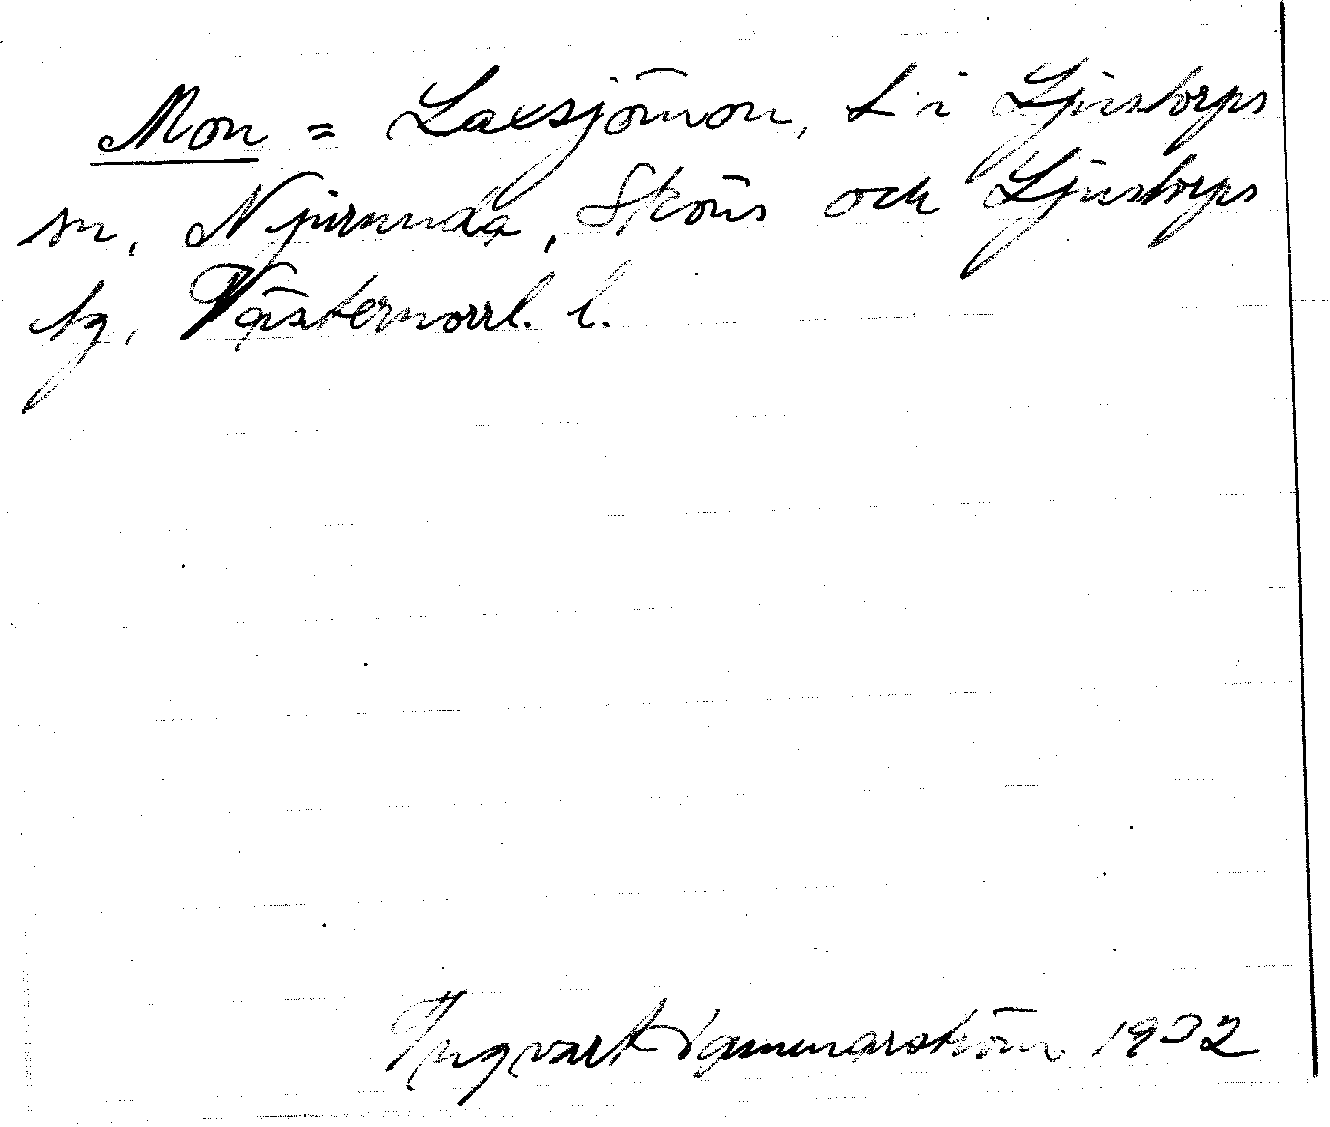 Mon = Laxsjömon, t. i Ljustorps
sn, Njurunda, Sköns och Ljustorps
tg, Västernorrl. l.
Ingvart Hammarström 1932